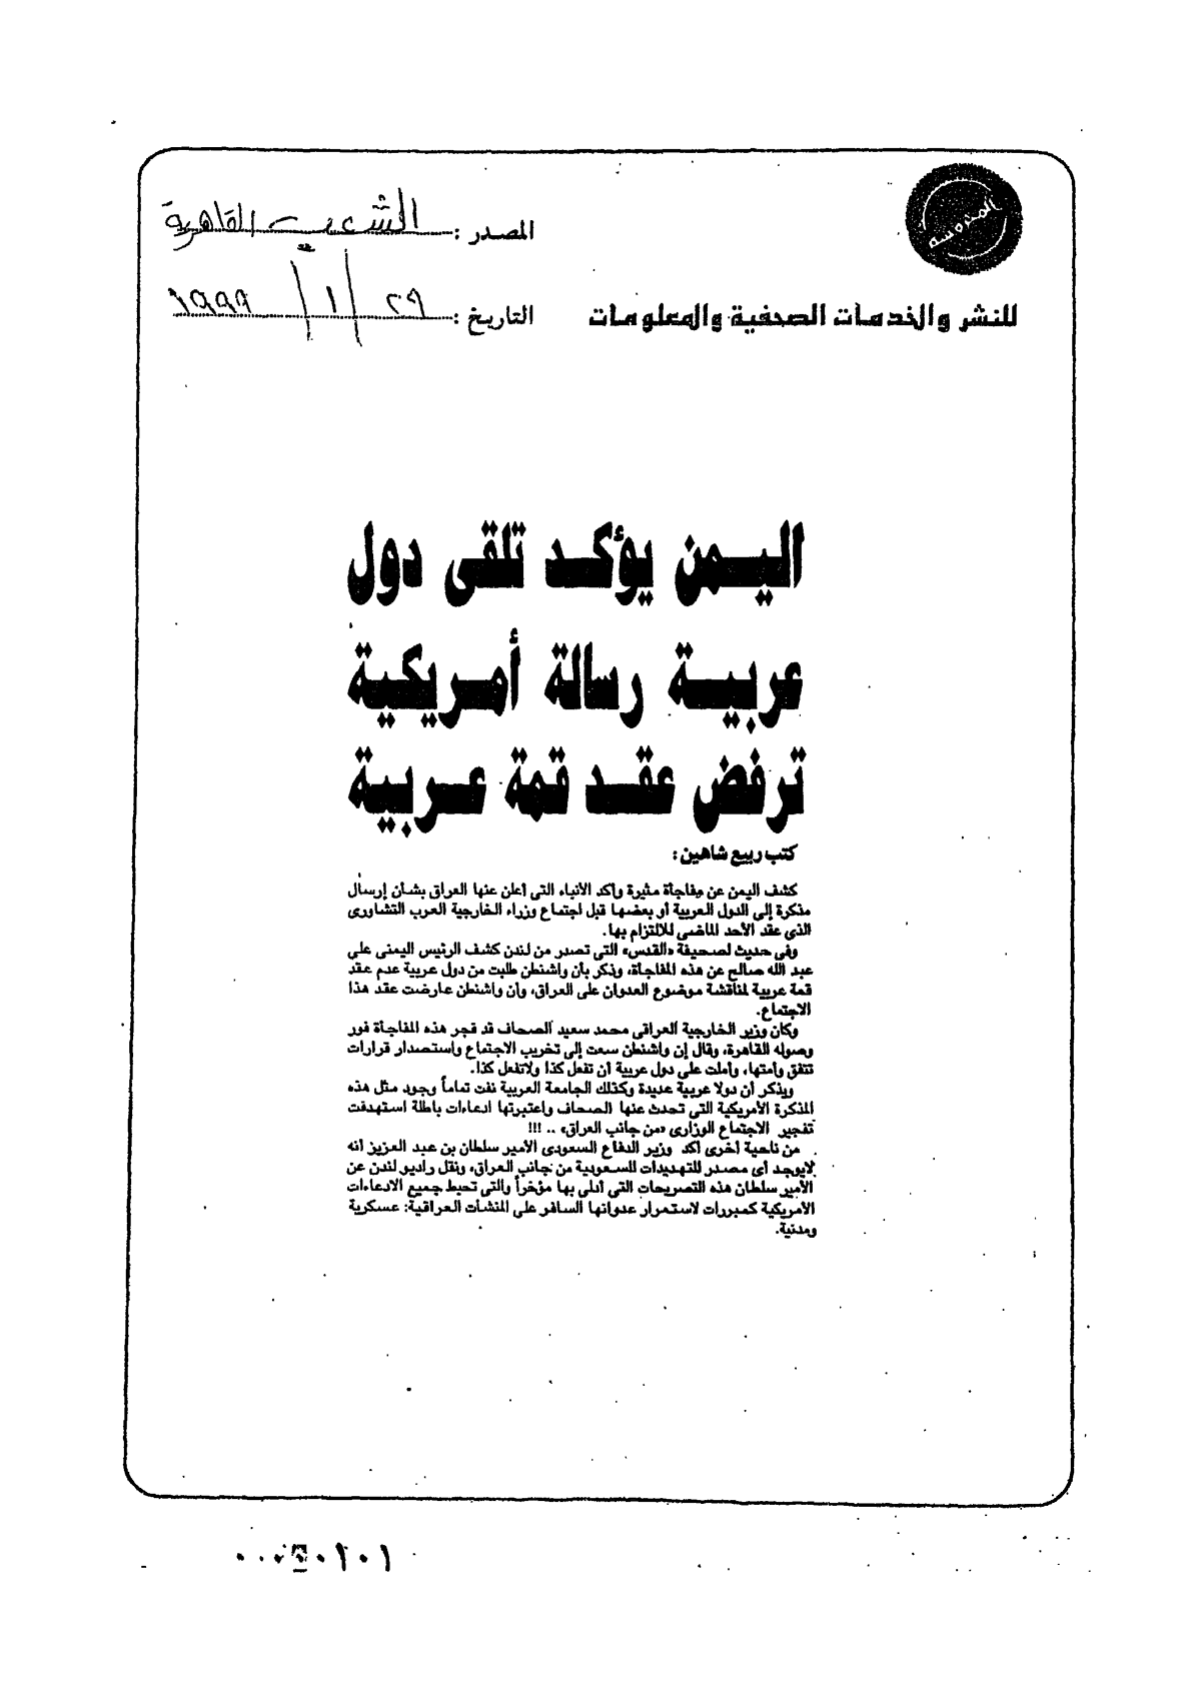 المحروسة
للنشر والخدمات الصحفية والمعلومات
المصدر : الشعب القاهرية
التاريخ : ٢٩ / ١ / ١٩٩٩
اليمن يؤكد تلقى دول
عربية رسالة أمريكية
ترفض عقد قمة عربية
كتب ربيع شاهين :
كشف اليمن عن مفاجأة مثيرة وأكد الأنباء التى أعلن عنها العراق بشأن إرسال
مذكرة إلى الدول العربية أو بعضها قبل اجتماع وزراء الخارجية العرب التشاورى
الذى عقد الأحد الماضى للالتزام بها.
وفى حديث لصحيفة «القدس» التى تصدر من لندن كشف الرئيس اليمنى على
عبد الله صالح عن هذه المفاجأة، وذكر بأن واشنطن طلبت من دول عربية عدم عقد
قمة عربية لمناقشة موضوع العدوان على العراق، وأن واشنطن عارضت عقد هذا
الاجتماع.
وكان وزير الخارجية العراقى محمد سعيد الصحاف قد فجر هذه المفاجأة فور
وصوله القاهرة، وقال إن واشنطن سعت إلى تخريب الاجتماع واستصدار قرارات
تتفق وأمتها، وأملت على دول عربية أن تفعل كذا ولاتفعل كذا.
ويذكر أن دولا عربية عديدة وكذلك الجامعة العربية نفت تماماً وجود مثل هذه
المذكرة الأمريكية التى تحدث عنها الصحاف واعتبرتها ادعاءات باطلة استهدفت
تفجير الاجتماع الوزارى «من جانب العراق» .. !!!
من ناحية أخرى أكد وزير الدفاع السعودى الأمير سلطان بن عبد العزيز أنه
لايوجد أى مصدر للتهديدات للسعودية من جانب العراق، ونقل راديو لندن عن
الأمير سلطان هذه التصريحات التى أدلى بها مؤخراً والتى تحبط جميع الادعاءات
الأمريكية كمبررات لاستمرار عدوانها السافر على المنشآت العراقية: عسكرية
ومدنية.